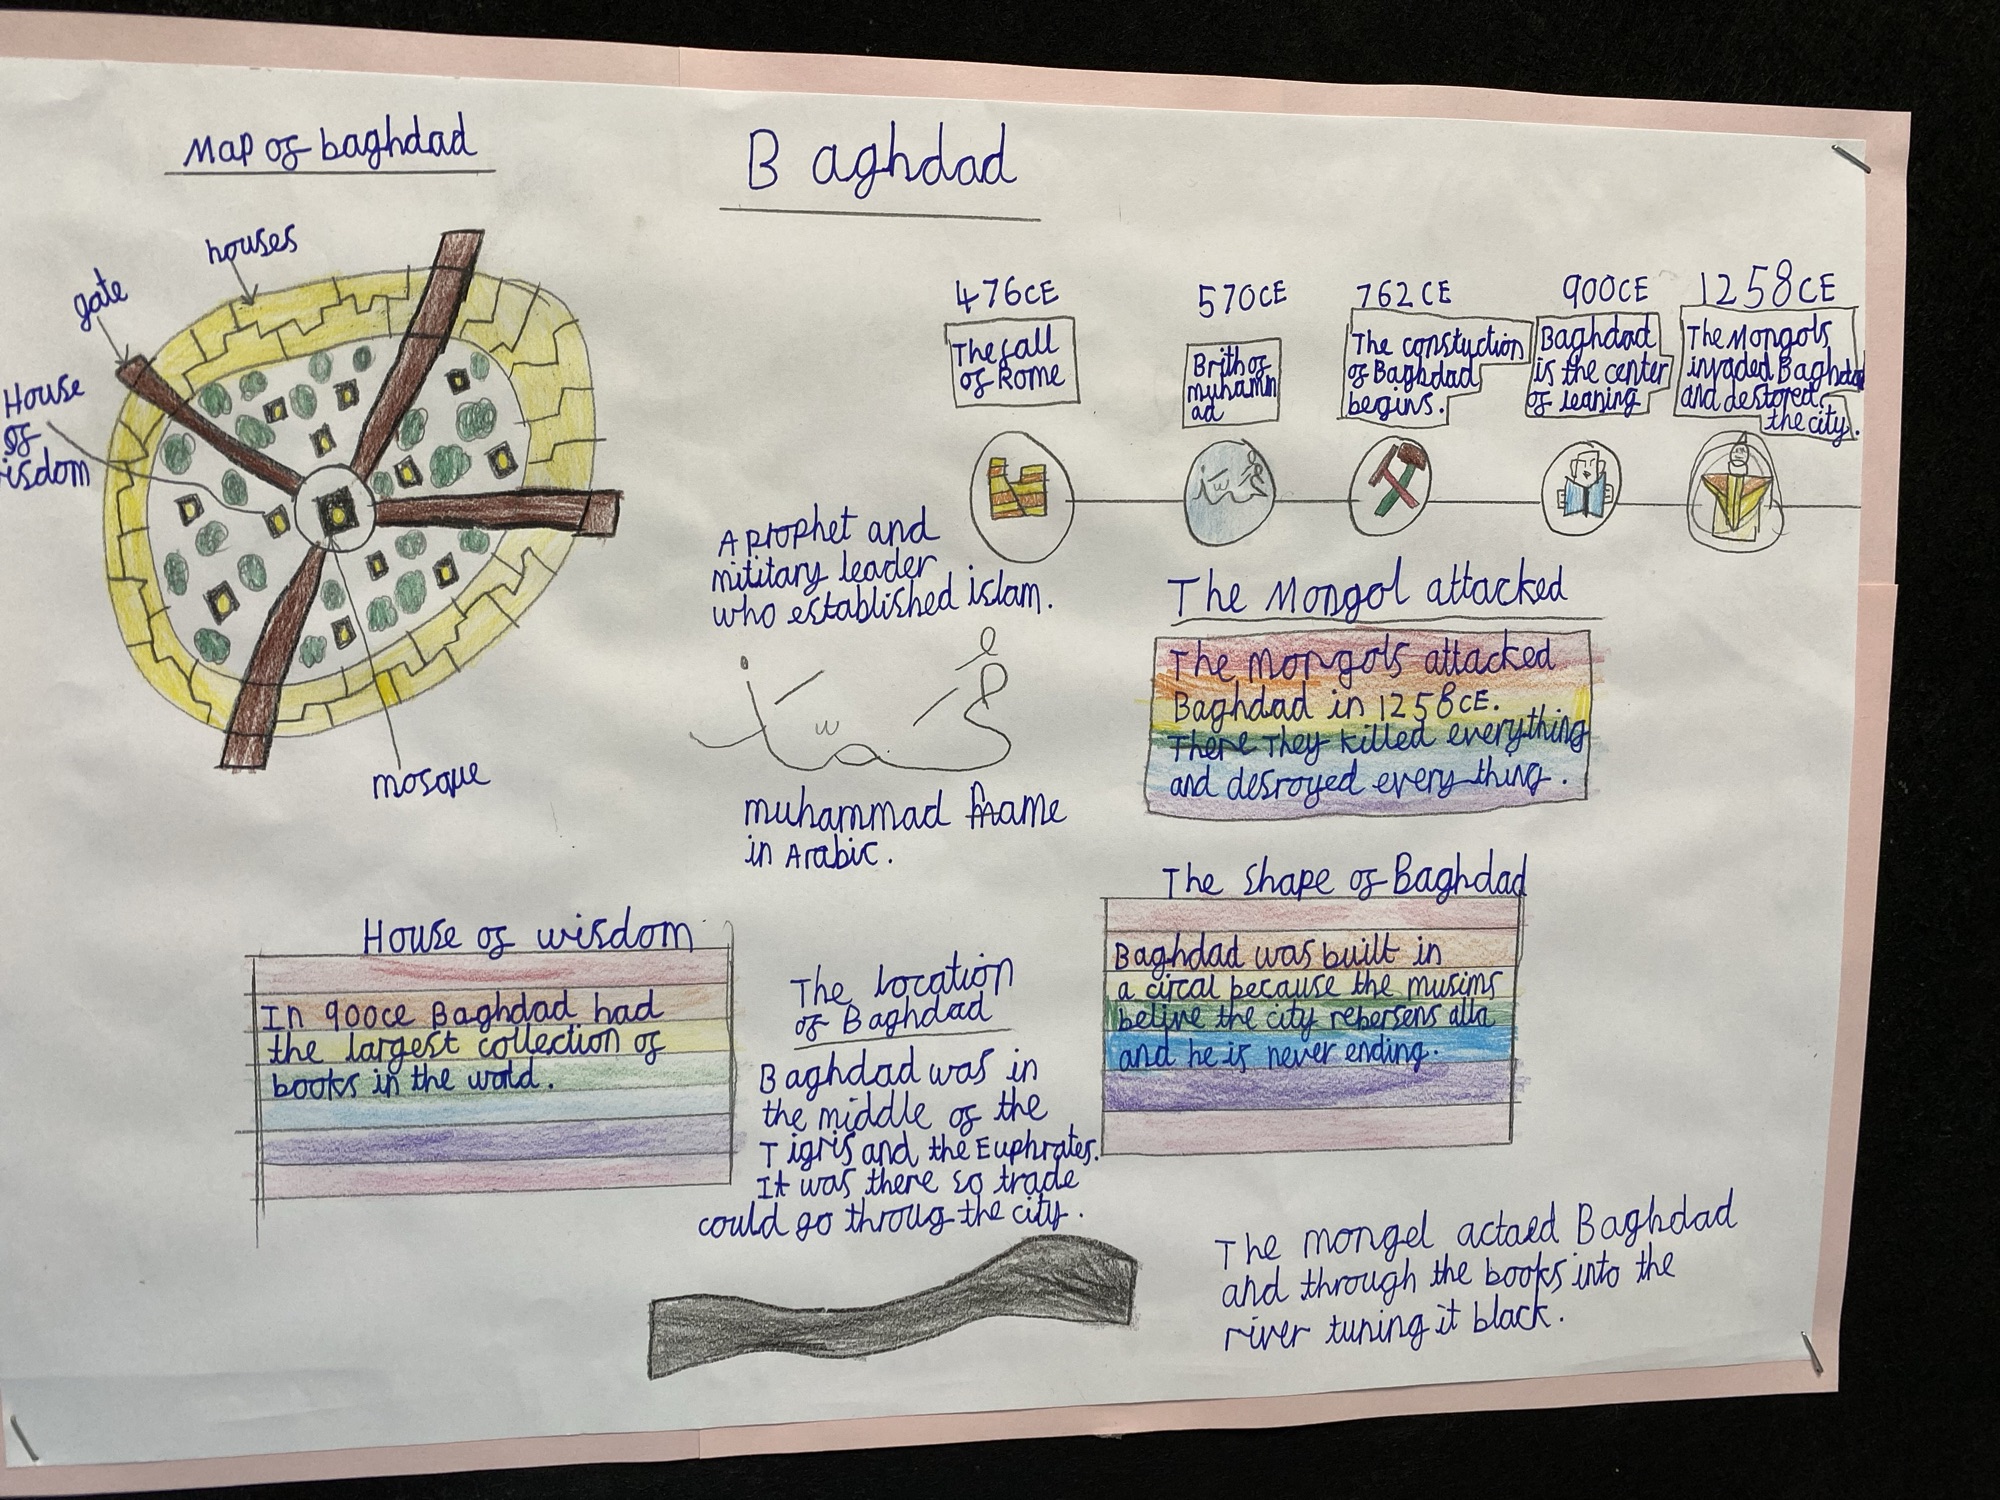 Map of baghdad
houses
gate
House
of
isdom
mosque
Baghdad
476CE
The fall
of Rome
570CE
Brith of
muhamm
ad
762CE
The constuction
of Baghdad
begins.
900CE
Baghdad
is the center
of leaning
1258CE
The Mongols
invaded Baghdad
and destored
the city.
A prophet and
mititary leader
who established islam.
muhammad name
in Arabic.
The Mongol attacked
The Mongols attacked
Baghdad in 1258CE.
There They killed everything
and desroyed every thing.
House of wisdom
In 900ce Baghdad had
the largest collection of
books in the wold.
The location
of Baghdad
Baghdad was in
the middle of the
Tigris and the Euphrates.
It was there so trade
could go throug the city.
The shape of Baghdad
Baghdad was built in
a circal because the musims
belive the city rebersens alla
and he is never ending.
The mongel actaed Baghdad
and through the books into the
river tuning it black.